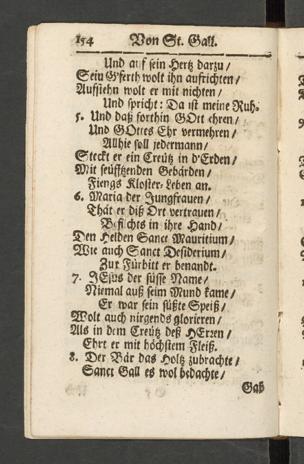 154 Von St. Gall.
Und auf sein Hertz darzu /
Sein G'ferth wolt ihn aufrichten /
Aufstehn wolt er mit nichten /
Und spricht: Da ist meine Ruh.
5. Und daß forthin GOtt ehren /
Und GOttes Ehr vermehren /
Allhie soll jedermann /
Steckt er ein Creütz in d'Erden /
Mit seüfftzenden Gebärden /
Fiengs Kloster-Leben an.
6. Maria der Jungfrauen /
Thät er diß Ort vertrauen /
Befichts in ihre Hand /
Den Helden Sanct Mauritium /
Wie auch Sanct Desiderium /
Zur Fürbitt er benandt.
7. JEsus der süsse Name /
Niemal auß sein Mund kame /
Er war sein süßte Speiß /
Wolt auch nirgends glorieren /
Als in dem Creütz deß HErren /
Ehrt er mit höchstem Fleiß.
8. Der Bär das Holtz zubrachte /
Sanct Gall es wol bedachte /
Gab